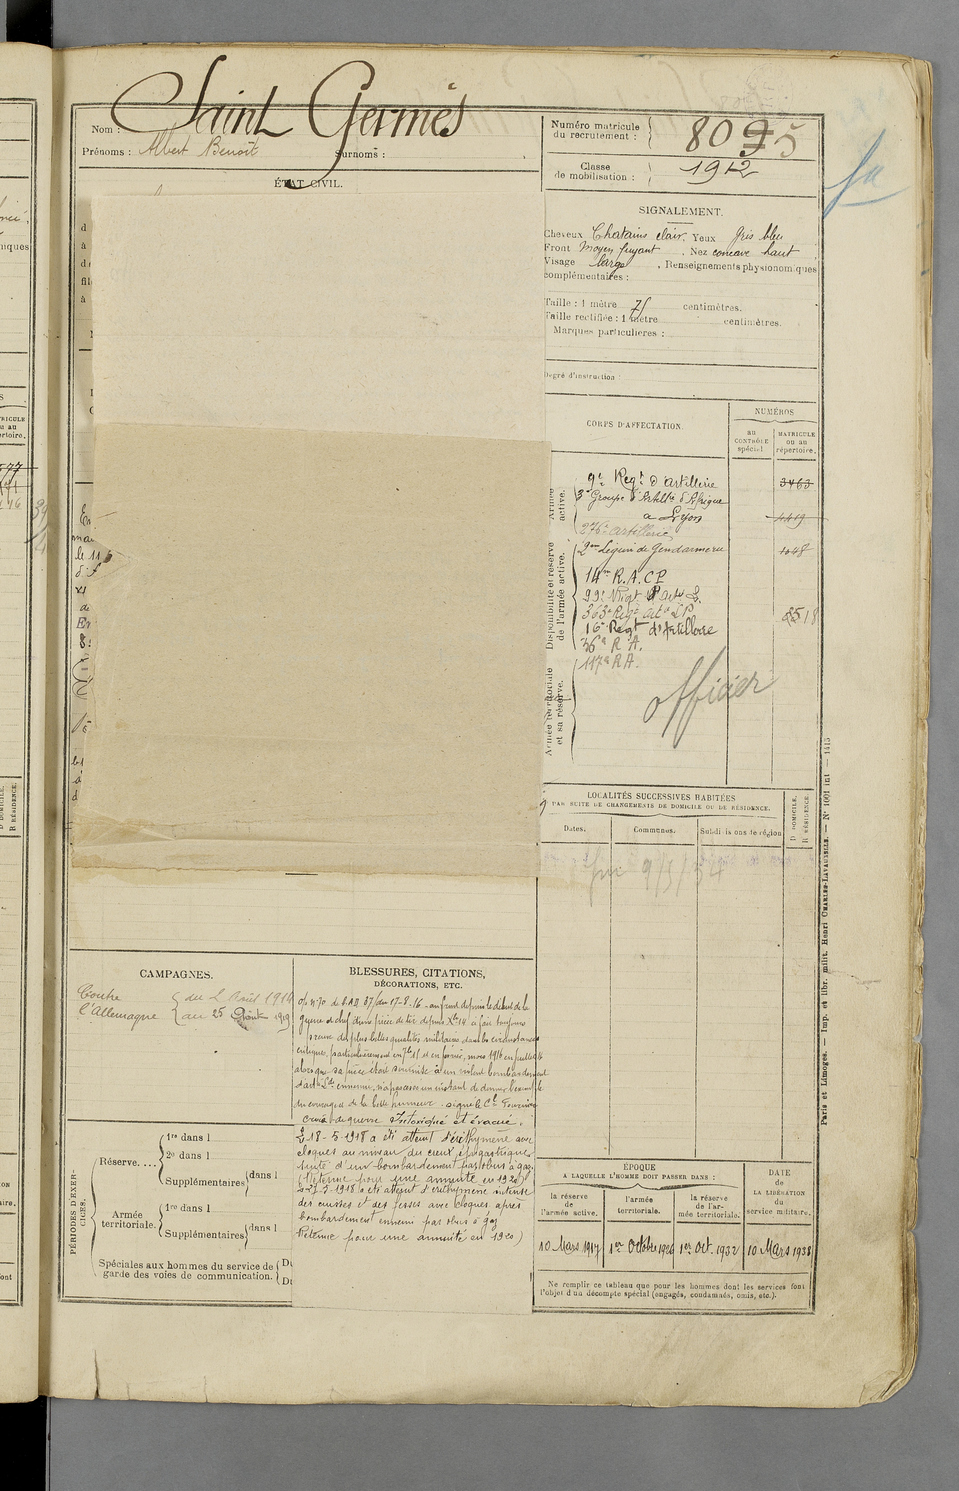 Saint Germès
Nom :
Prénoms : Albert Benoît Surnoms :
ÉTAT CIVIL.
Numéro matricule
du recrutement :
809 5
Classe
de mobilisation :
1912
SIGNALEMENT.
Cheveux Chatains clair. Yeux Gris bleu
Front Moyen fuyant . Nez concave haut
Visage large . Renseignements physionomiques
complémentaires :
Taille : 1 mètre 75 centimètres.
Taille rectifiée : 1 mètre centimètres.
Marques particulières :
Degré d'instruction :
CORPS D'AFFECTATION.
NUMÉROS
au
CONTRÔLE
spécial
MATRICULE
ou au
répertoire.
Armée
active.
9e Regt d'artillerie 3463
3e Groupe d'Artillie d'Afrique
a Lyon 4419
276e artillerie
Disponibilité et réserve
de l'armée active.
2me Légion de Gendarmerie 1048
14me R.A.C.P.
99e Regt d'art. L.
363e Regt art. L.P.
16e Regt d'Artillerie
36e R.A.
Armée territoriale
et sa réserve.
117e R.A.
officier
LOCALITÉS SUCCESSIVES HABITÉES
PAR SUITE DE CHANGEMENTS DE DOMICILE OU DE RÉSIDENCE.
Dates.
Communes.
Subdivisions de région
D DOMICILE.
R RÉSIDENCE.
9/5/34
CAMPAGNES.
Contre
l'Allemagne
du 2 Août 1914
au 25 Août 1919
BLESSURES, CITATIONS,
DÉCORATIONS, ETC.
o/s no 70 de l'A.D. 37 du 17-8-16 - au front depuis le début de la
guerre et chef d'une pièce de tir depuis Xbre 14 a fait toujours
preuve des plus belles qualités militaires dans les circonstances
critiques, particulièrement en 7bre 15 et en février, mars 1916 en juillet 16
alors que sa pièce était soumise à un violent bombardement
d'artie Lde ennemie, n'a pas cessé un instant de donner l'exemple
du courage et de la belle humeur. signé le Cl Fournier
Croix de guerre. Intoxiqué et évacué.
Le 18-5-1918 a été atteint d'érythymène avec
cloques au niveau du creux épigastrique
suite d'un bombardement par obus à gaz.
(Retenue pour une annuité en 1920)
Le 27-5-1918 a été atteint d'érithymène intense
des cuisses et des fesses avec cloques après
bombardement ennemi par obus à gaz
(Retenue pour une annuité en 1920)
PÉRIODES D'EXERCICES.
Réserve....
1re dans l
2e dans l
Supplémentaires
dans l
Armée
territoriale.
1re dans l
Supplémentaires
dans l
Spéciales aux hommes du service de
garde des voies de communication.
D
D
ÉPOQUE
A LAQUELLE L'HOMME DOIT PASSER DANS :
la réserve
de
l'armée active.
l'armée
territoriale.
la réserve
de l'ar-
mée territoriale.
DATE
de
LA LIBÉRATION
du
service militaire.
10 Mars 1917
1er Octobre 1926
1er Oct. 1932
10 Mars 1938
Ne remplir ce tableau que pour les hommes dont les services font
l'objet d'un décompte spécial (engagés, condamnés, omis, etc.).
Paris et Limoges. — Imp. et libr. milit. Henri CHARLES-LAVAUZELLE. — No 1001 int — 1415